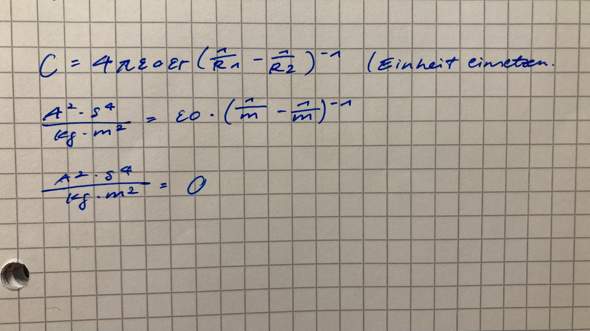 C = 4πε0εr (1/R1 - 1/R2)^-1 (Einheit einsetzen.
A²·s⁴/kg·m² = ε0 · (1/m - 1/m)^-1
A²·s⁴/kg·m² = 0